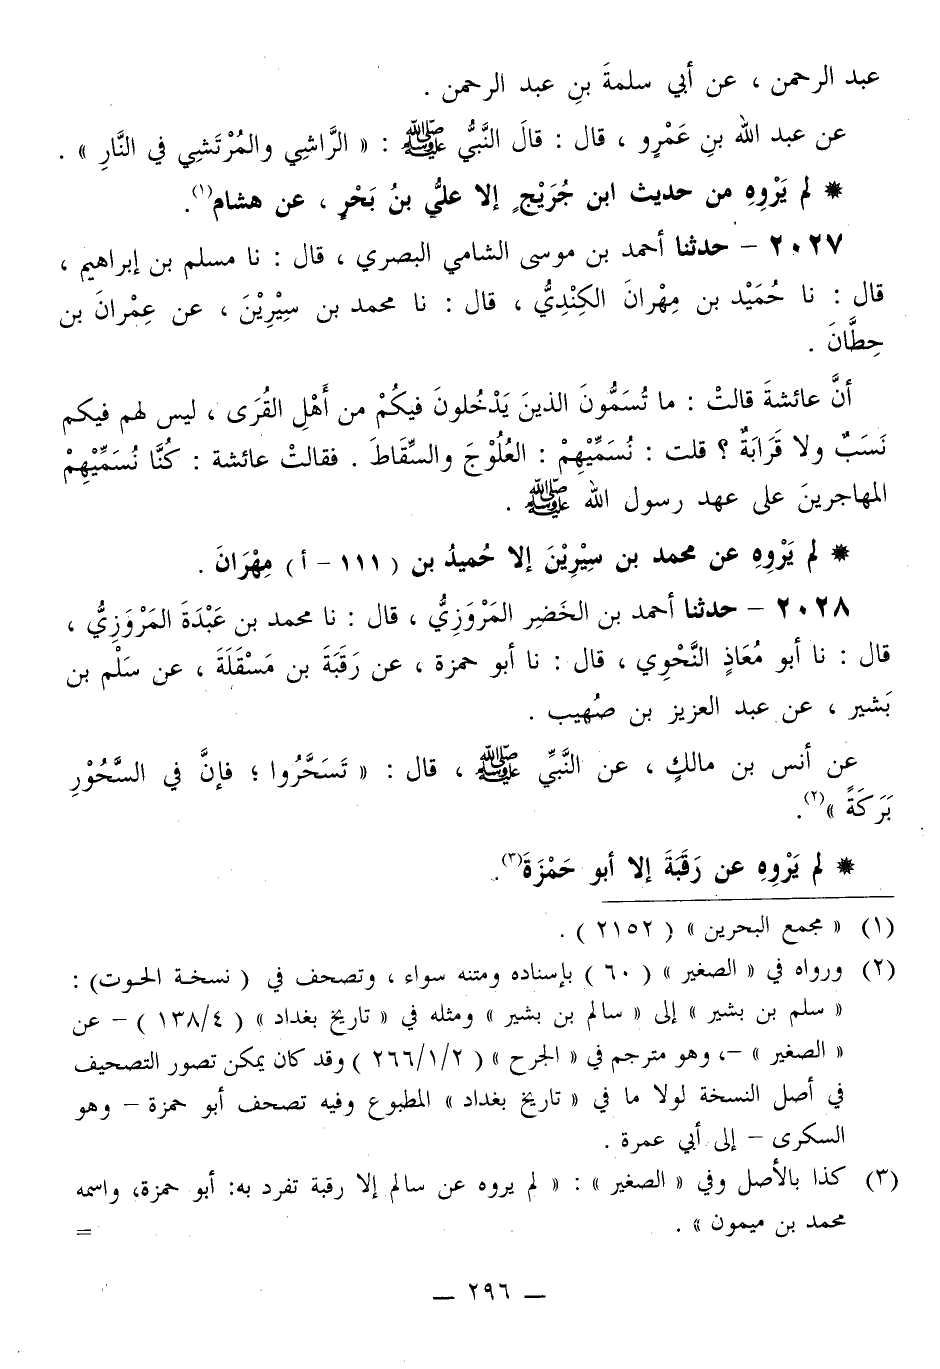 عبد الرحمن ، عن أبي سلمةَ بنِ عبد الرحمن .
عن عبد الله بنِ عَمْرٍو ، قال : قالَ النَّبيُّ ﷺ : « الرَّاشِي والمُرْتَشِي في النَّارِ » .
✹ لم يَرْوِهِ من حديث ابن جُرَيْجٍ إلا عليُّ بنُ بَحْرٍ ، عن هشام(١).
٢٠٢٧ – حدثنا أحمد بن موسى الشامي البصري ، قال : نا مسلم بن إبراهيم ،
قال : نا حُمَيْد بن مِهْرانَ الكِنْدِيُّ ، قال : نا محمد بن سِيْرِيْنَ ، عن عِمْرانَ بن
حِطَّانَ .
أنَّ عائشةَ قالتْ : ما تُسَمُّونَ الذينَ يَدْخُلونَ فيكُمْ من أَهْلِ القُرَى ، ليس لهم فيكم
نَسَبٌ ولا قَرَابَةٌ ؟ قلت : نُسَمِّيْهِمْ : العُلُوْجَ والسِّقَاطَ . فقالتْ عائشة : كُنَّا نُسَمِّيْهِمْ
المهاجرينَ على عهد رسول الله ﷺ .
✹ لم يَرْوِهِ عن محمد بن سِيْرِيْنَ إلا حُميدُ بن ( ١١١ – أ ) مِهْرَانَ .
٢٠٢٨ – حدثنا أحمد بن الخَضِر المَرْوَزِيُّ ، قال : نا محمد بن عَبْدَةَ المَرْوَزِيُّ ،
قال : نا أبو مُعَاذٍ النَّحْوِي ، قال : نا أبو حمزة ، عن رَقَبَةَ بن مَسْقَلَةَ ، عن سَلْم بن
بَشير ، عن عبد العزيز بن صُهيب .
عن أنس بن مالكٍ ، عن النَّبيِّ ﷺ ، قال : « تَسَحَّرُوا ؛ فإنَّ في السَّحُوْرِ
بَرَكَةً »(٢).
✹ لم يَرْوِهِ عن رَقَبَةَ إلا أبو حَمْزَةَ(٣).
(١) « مجمع البحرين » ( ٢١٥٢ ) .
(٢) ورواه في « الصغير » ( ٦٠ ) بإسناده ومتنه سواء ، وتصحف في ( نسخة الحوت) :
« سلم بن بشير » إلى « سالم بن بشير » ومثله في « تاريخ بغداد » ( ١٣٨/٤ ) – عن
« الصغير » –، وهو مترجم في « الجرح » ( ٢٦٦/١/٢ ) وقد كان يمكن تصور التصحيف
في أصل النسخة لولا ما في « تاريخ بغداد » المطبوع وفيه تصحف أبو حمزة – وهو
السكرى – إلى أبي عمرة .
(٣) كذا بالأصل وفي « الصغير » : « لم يروه عن سالم إلا رقبة تفرد به: أبو حمزة، واسمه
محمد بن ميمون » . =
— ٢٩٦ —